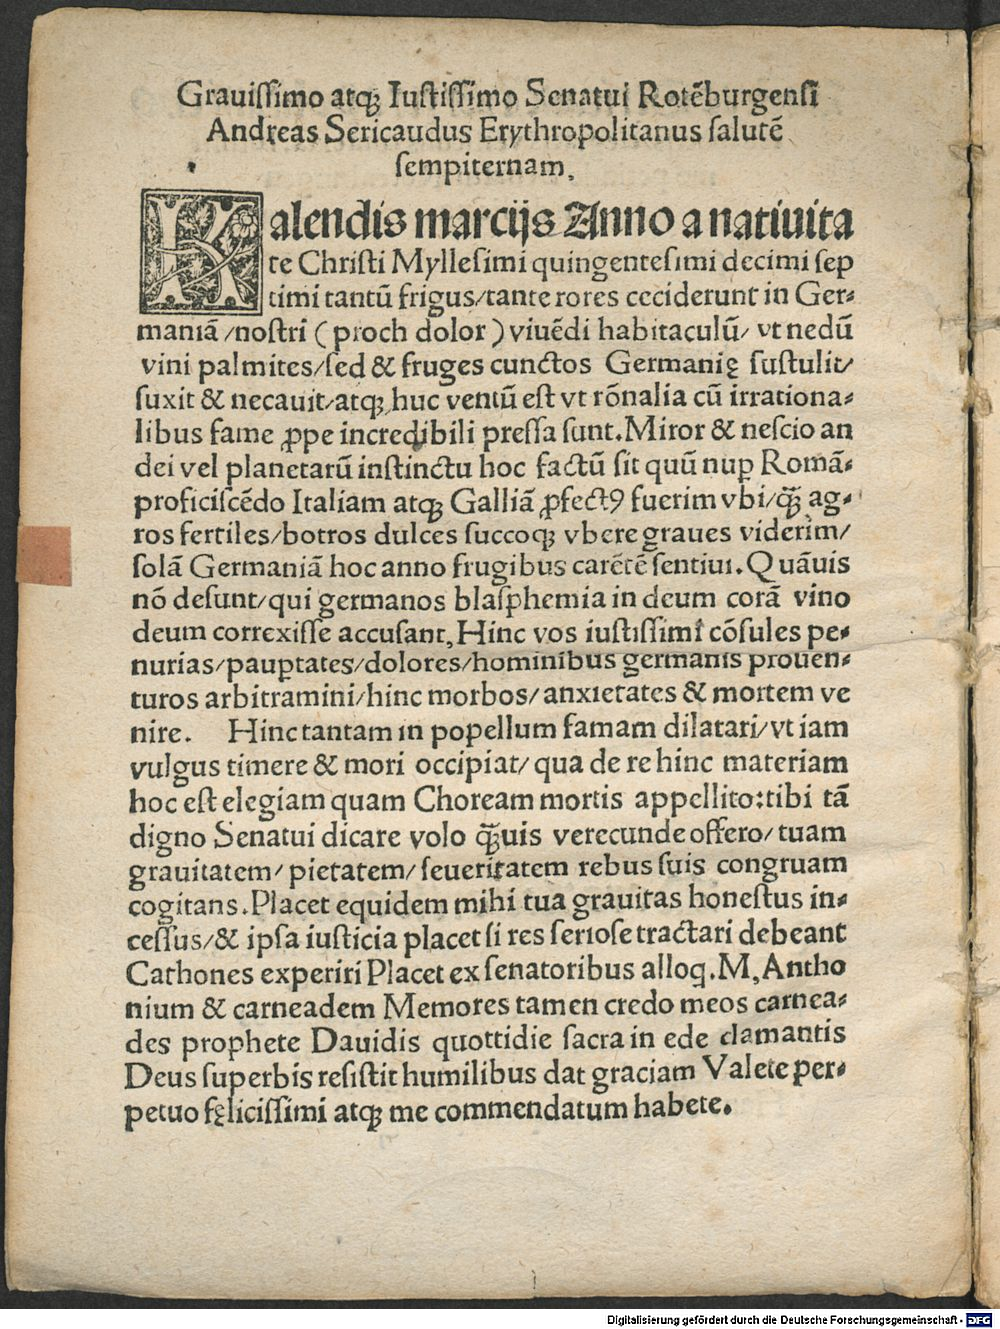 Grauiſſimo atqꝫ Iuſtiſſimo Senatui Rotēburgenſi
Andreas Sericaudus Erythropolitanus ſalutē
ſempiternam.
Kalendis marcijs Anno a natiuita
te Chriſti Myllesimi quingenteſimi decimi ſep
timi tantū frigus/tante rores ceciderunt in Ger⸗
maniā /noſtri ( proch dolor ) viuēdi habitaculū/ vt nedū
vini palmites/ſed & fruges cunctos Germanię ſuſtulit/
ſuxit & necauit/atqꝫ huc ventū eſt vt rōnalia cū irrationa⸗
libus fame ꝓpe incredibili preſſa ſunt. Miror & neſcio an
dei vel planetarū inſtinctu hoc factū ſit quū nuꝑ Romā⸗
proficiſcēdo Italiam atqꝫ Galliā ꝓfectꝯ fuerim vbi/qꝫ̄ ag⸗
ros fertiles/botros dulces ſuccoqꝫ vbere graues viderim/
ſolā Germaniā hoc anno frugibus carētē ſentiui. Quāuis
nō deſunt/qui germanos blaſphemia in deum corā vino
deum correxiſſe accuſant, Hinc vos iuſtiſſimi cōſules pe⸗
nurias/pauꝑtates/dolores/hominibus germanis prouen⸗
turos arbitramini/hinc morbos/anxietates & mortem ve
nire. Hinc tantam in popellum famam dilatari/vt iam
vulgus timere & mori occipiat/ qua de re hinc materiam
hoc eſt elegiam quam Choream mortis appellito:tibi tā
digno Senatui dicare volo qꝫ̄uis verecunde offero/tuam
grauitatem/ pietatem/ ſeueritatem rebus ſuis congruam
cogitans. Placet equidem mihi tua grauitas honeſtus in⸗
ceſſus/& ipſa iuſticia placet ſi res ſerioſe tractari debeant
Cathones experiri Placet ex ſenatoribus alloq̨. M, Antho
nium & carneadem Memores tamen credo meos carnea⸗
des prophete Dauidis quottidie ſacra in ede clamantis
Deus ſuperbis reſiſtit humilibus dat graciam Valete per⸗
petuo fęliciſſimi atqꝫ me commendatum habete.
Digitalisierung gefördert durch die Deutsche Forschungsgemeinschaft - DFG